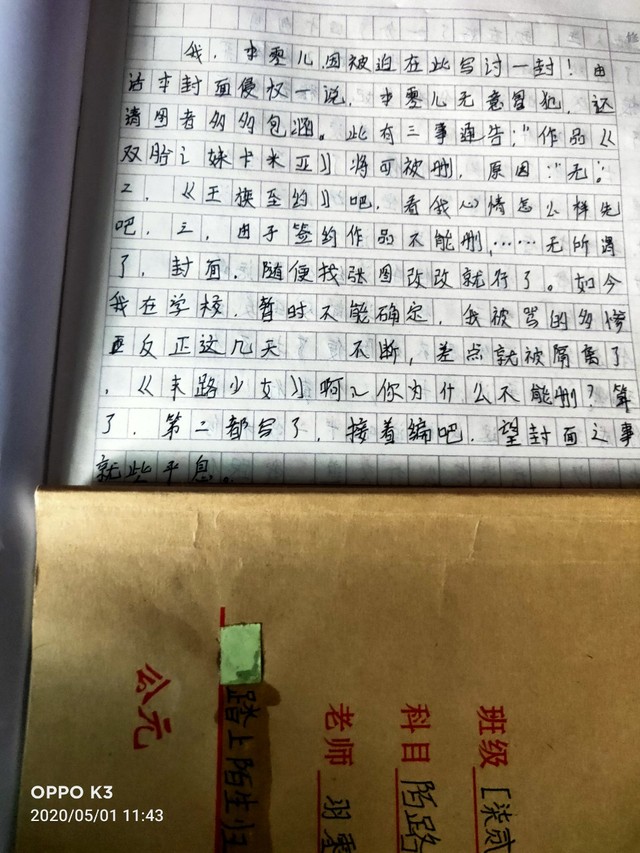 我，李零儿，因被迫在此写讨一封！由
沾本封面侵权一说，李零儿无意冒犯，还
请图者多多包涵。此有三事通告："作品《
双胎之妹卡米亚》将可被删，原因："无。
2，《王族至约》吧，看我心情怎么样先
吧，三，由于签约作品不能删，……无所谓
了，封面，随便找张图改改就行了。如今
我在学校，暂时不能确定，我被骂的多惨
反正这几天 不断，差点就被隔离了
，《末路少女》啊~你为什么不能删？算
了，第二都写了，接着编吧，望封面之事
就些平息。
班级 [柒贰
科目 陌路
老师 羽零
踏上陌生归
公元
OPPO K3
2020/05/01 11:43